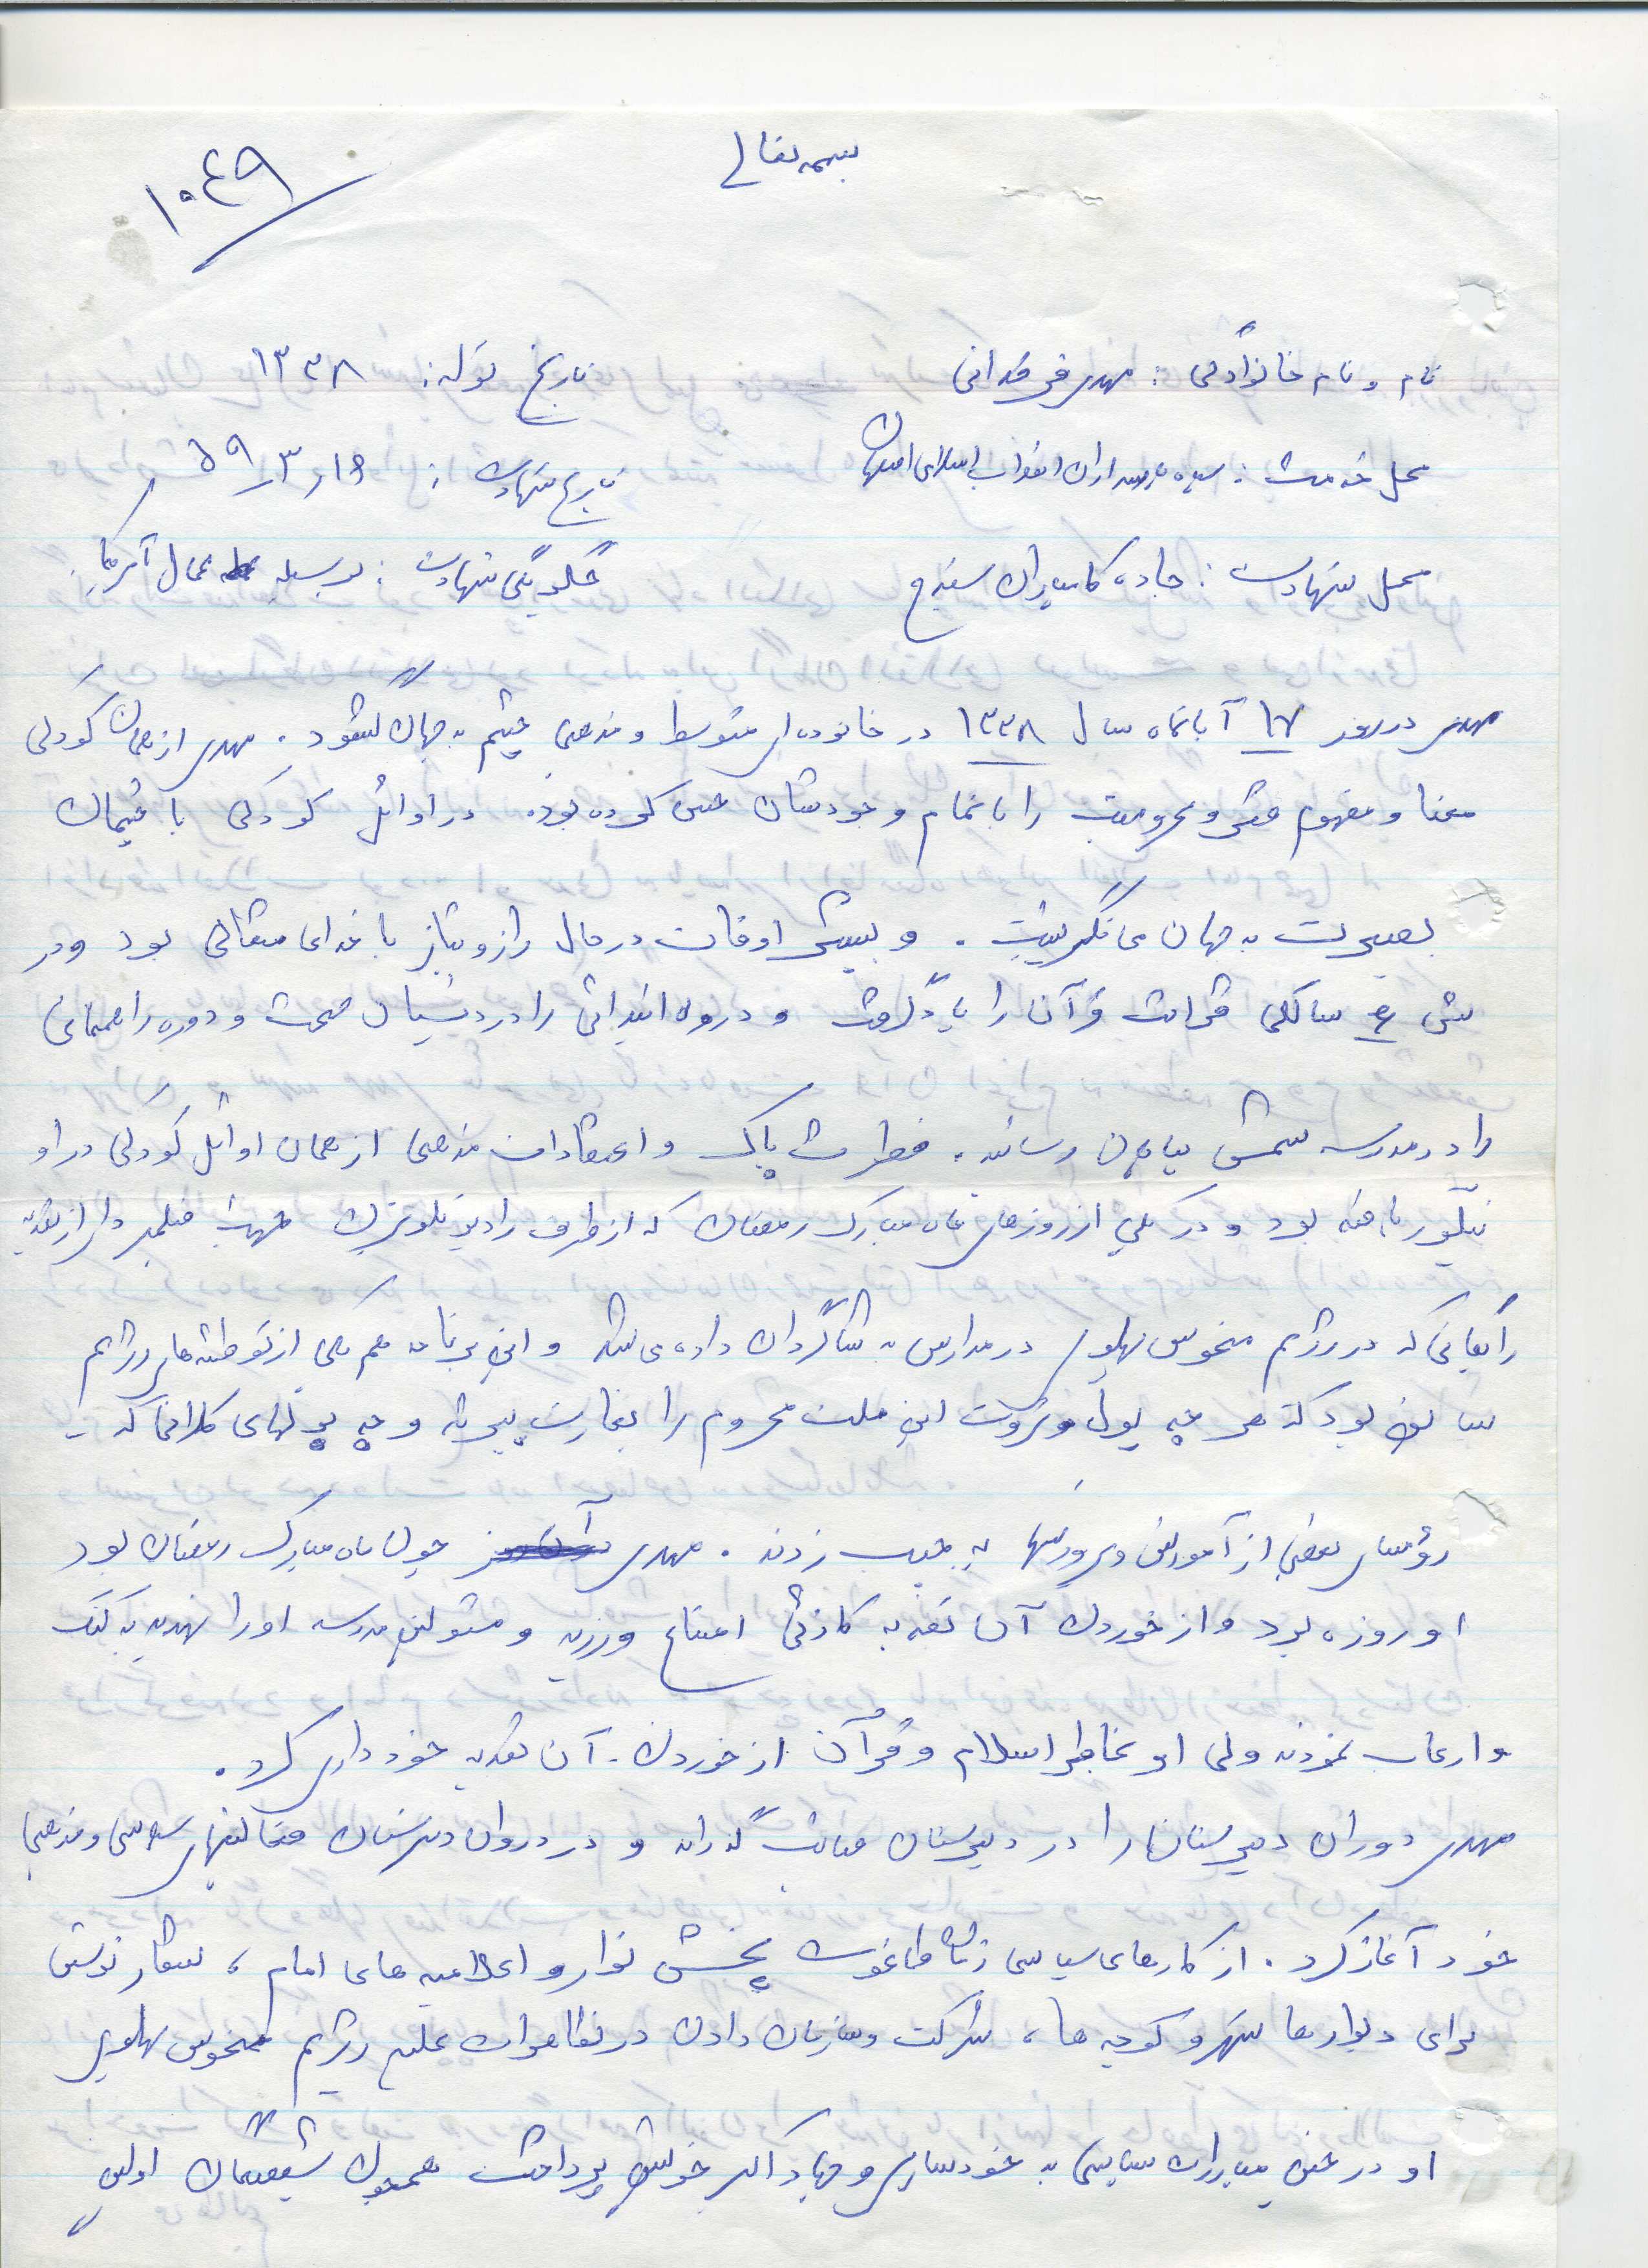 بسمه تعالی
۱۰۴۹
نام و نام خانوادگی : مهدی فرقدانی تاریخ تولد : ۱۳۳۸
محل خدمت : سپاه پاسداران انقلاب اسلامی اصفهان تاریخ شهادت : ۵۹/۳/۱۶
محل شهادت : جاده کامیاران سنندج چگونگی شهادت : بوسیله عمال آمریکا.
مهدی در روز ۱۷ آبانماه سال ۱۳۳۸ در خانواده ای متوسط و مذهبی چشم به جهان گشود . مهدی از همان کودکی
معنا و مفهوم فقر و محرومیت را با تمام وجودشان حس کرده بود. در اوائل کودکی با چشمان
بصیرت به جهان می نگریست . و بیشتر اوقات در حال راز و نیاز با خدای متعالی بود و در
سالگی قرائت قرآن را یاد گرفت و دوره ابتدائی را در دبستان صحت و دوره راهنمای
را در مدرسه شمس بپایان رساند . فطرت پاک و اعتقادات مذهبی از همان اوائل کودکی در او
تبلور یافته بود و در یکی از روزهای ماه مبارک رمضان که از طرف رادیو تلویزیون جهت فیلمبرداری از تغذیه
رایگانی که در رژیم منحوس پهلوی در مدارس به شاگردان داده می شد و این برنامه هم یکی از توطئه های رژیم
سابق بود که هر چه پول و ثروت این ملت محروم را بغارت ببرند و چه پولهای کلانی که
رؤسای بعضی از آموزش و پرورشها به جیب زدند . مهدی چون ماه مبارک رمضان بود
او روزه بود و از خوردن آن تغذیه کاذبی امتناع ورزید و مسئولین مدرسه او را تهدید به کتک
و ارعاب نمودند ولی او بخاطر اسلام و قرآن از خوردن آن تغذیه خودداری کرد .
مهدی دوران دبیرستان را در دبیرستان گذراند و در دوران دبیرستان فعالیتهای سیاسی و مذهبی
خود آغاز کرد . از کارهای سیاسی زمان طاغوت پخش نوار و اعلامیه های امام ، شعار نوشتن
برای دیوارها شهر و کوچه ها ، شرکت و سازمان دادن در تظاهرات علیه رژیم منحوس پهلوی
او در عین مبارزات سیاسی به خودسازی و جهاد اکبر خویش پرداخت همچون شیعیان اولین